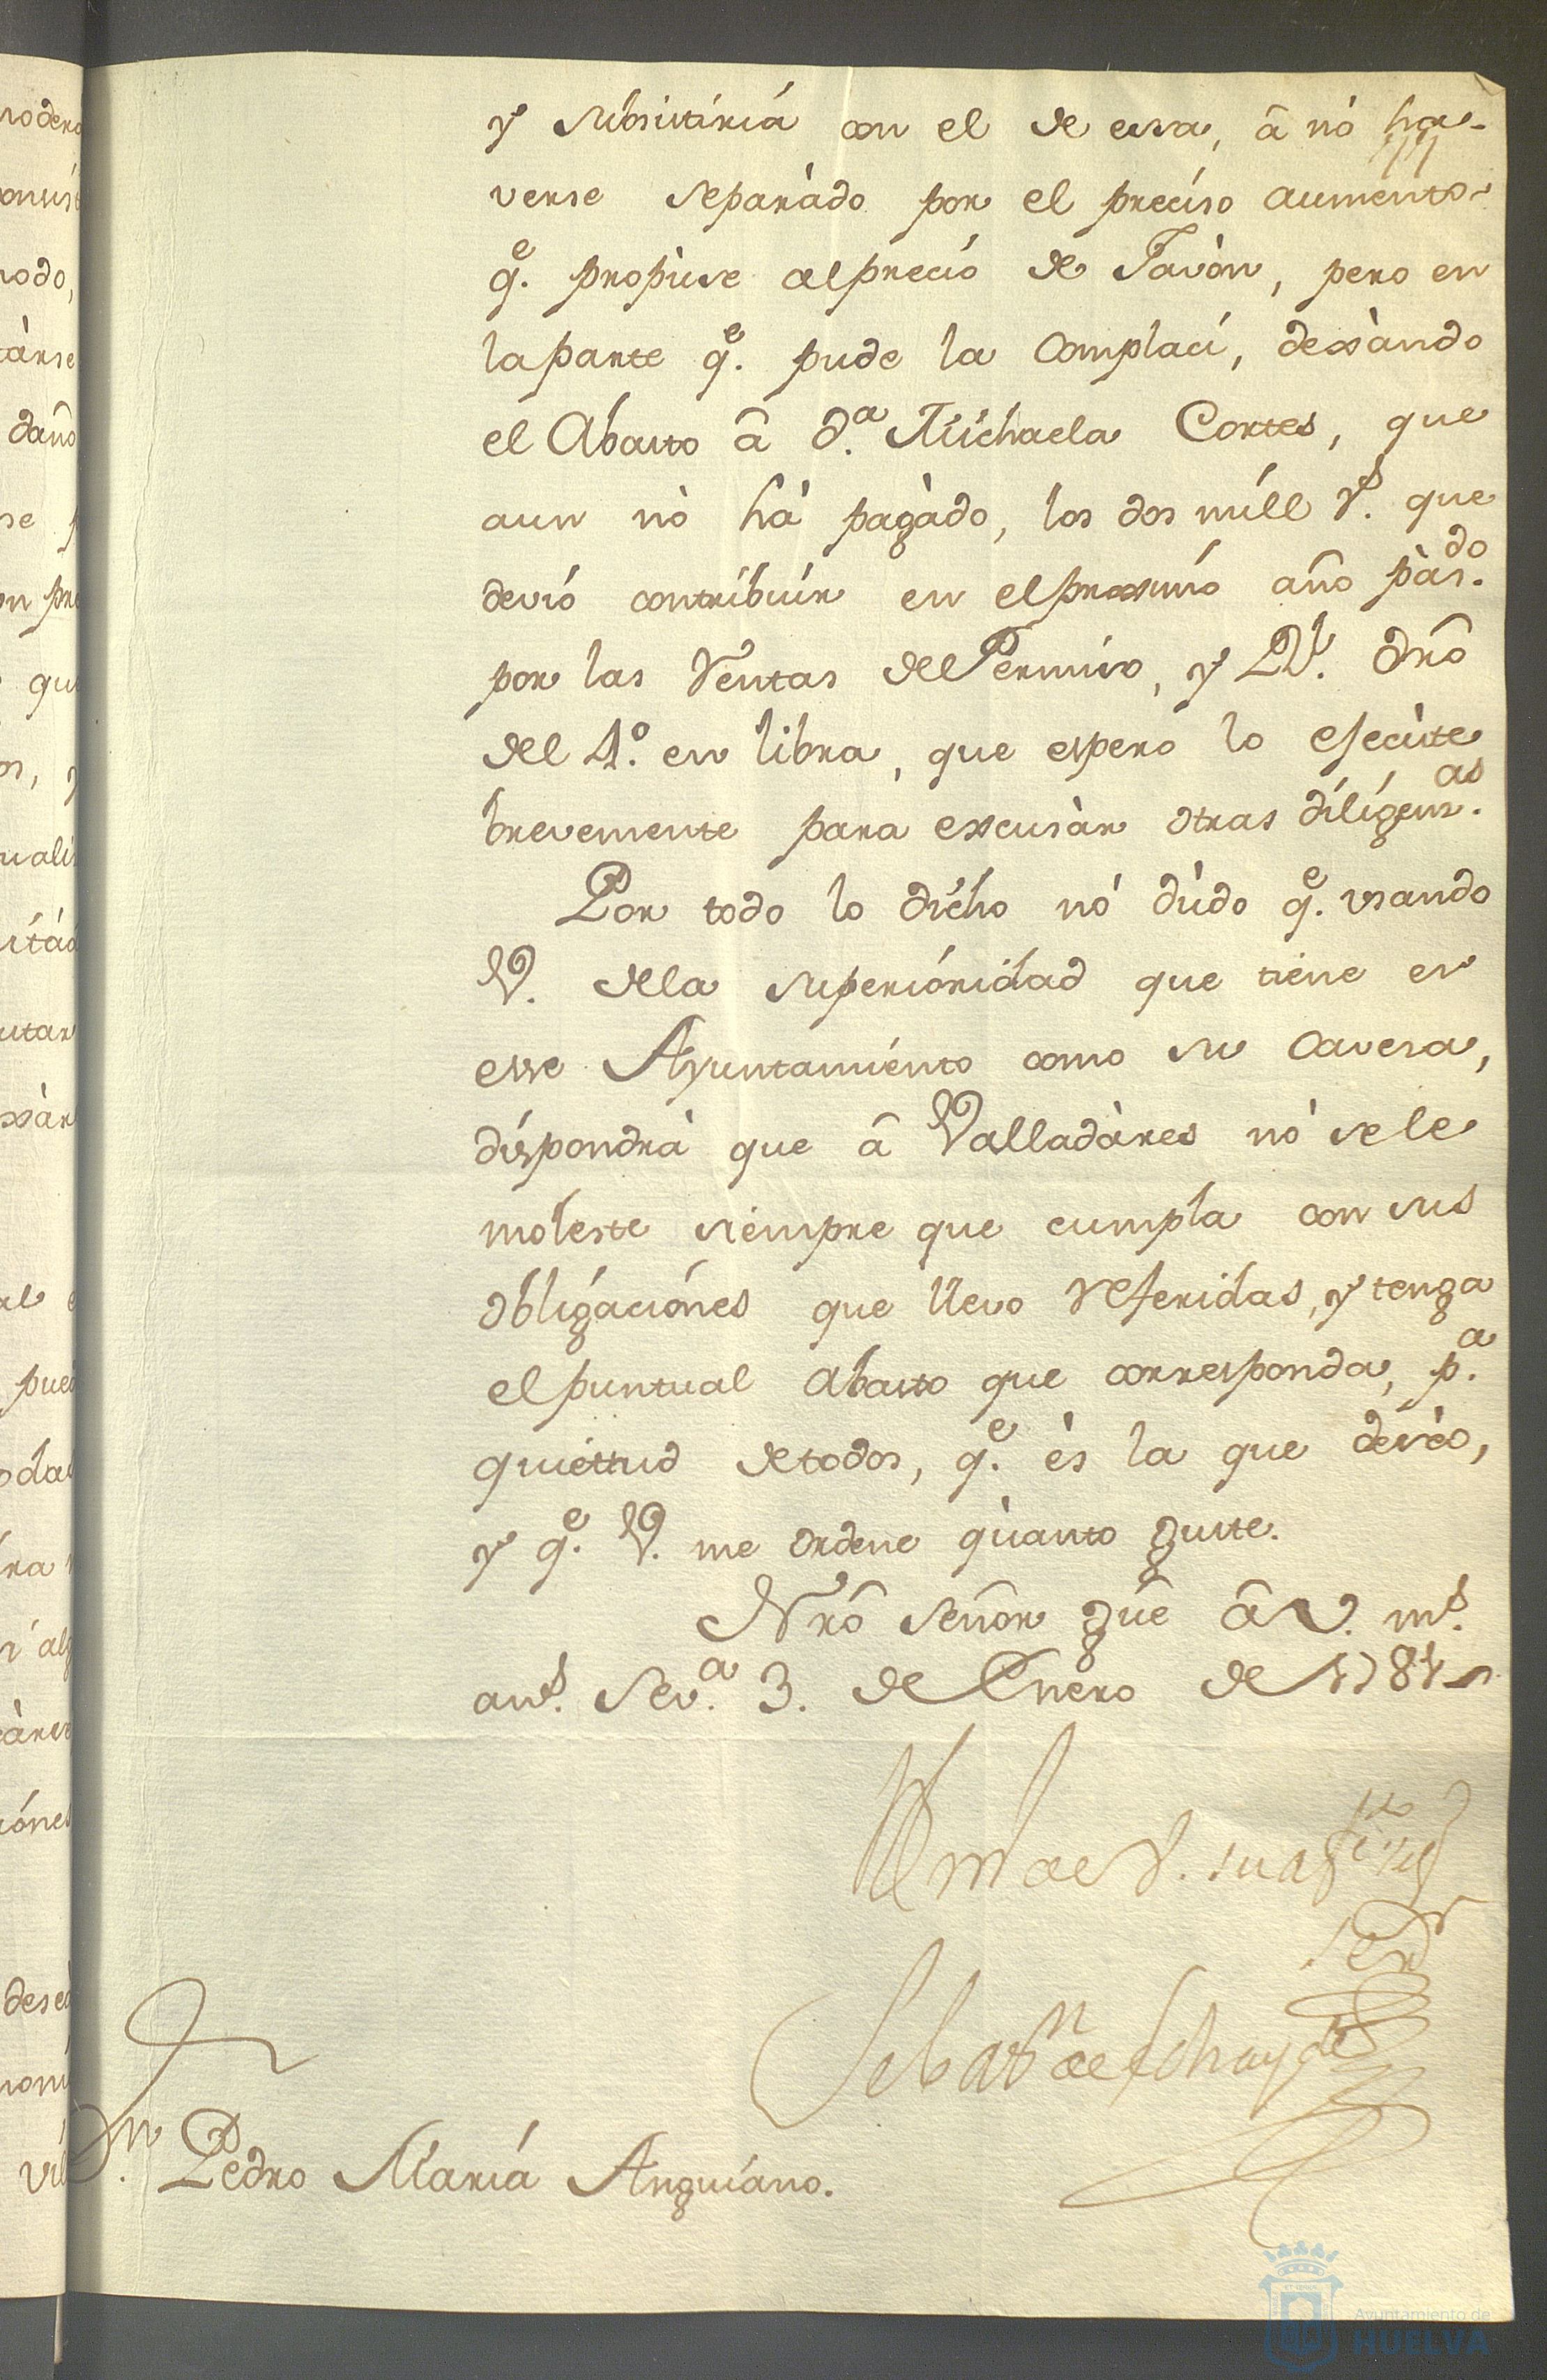 y subsistiria con el de essa, â nó ha-
verse separàdo por el preciso aumento
q.e propùse al preció de Javòn, pero en
la parte q.e pude la Complací, dexàndo
el Abasto â d.a Michaela Cortes, que
aun nò hà pagàdo, los dos mill r.s que
devió contribuir en el proximó año pàs.do
por las Ventas del Permiso, y R.l dr̃o
del 4.o en libra, que espero lo ejecùte
brevemente para excusàr otras diligenz.as
Por todo lo dicho nó dùdo q.e usando
V. de la superióridad que tiene en
esse Ayuntamiénto como su Cavesa,
dispondrà que â Valladàres nó se le
moleste siémpre que cumpla con sus
obligaciónes que llevo referidas, y tenga
el puntual Abasto que corresponda, p.a
quiéttud de todos, q.e ès la que desèo,
y q.e V. me ordene quànto guste.
Nrõ Señor gũe â V. m.s
an.s Sev.a 3. de Enero de 1784
BlMo de V. su af.to
ser.r
Sebast.n de
D.n Pedro María Anguiano.
noderà
nodo,
tàrse
daño
se
qu
utar
xàr
al
pued
ra
àrse
ciónes
dese
Ayuntamiento de
HUELVA